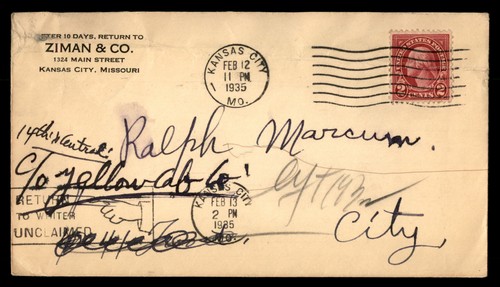 AFTER 10 DAYS, RETURN TO
ZIMAN & CO.
1324 MAIN STREET
KANSAS CITY, MISSOURI
KANSAS CITY
FEB 12
11 PM
1935
MO.
UNITED STATES POSTAGE
2 CENTS 2
14th & Central
Ralph Marcum.
c/o Yellow Cab Co
KANSAS CITY
FEB 13
2 PM
1935
MO.
RETURN
TO WRITER
UNCLAIMED
City,